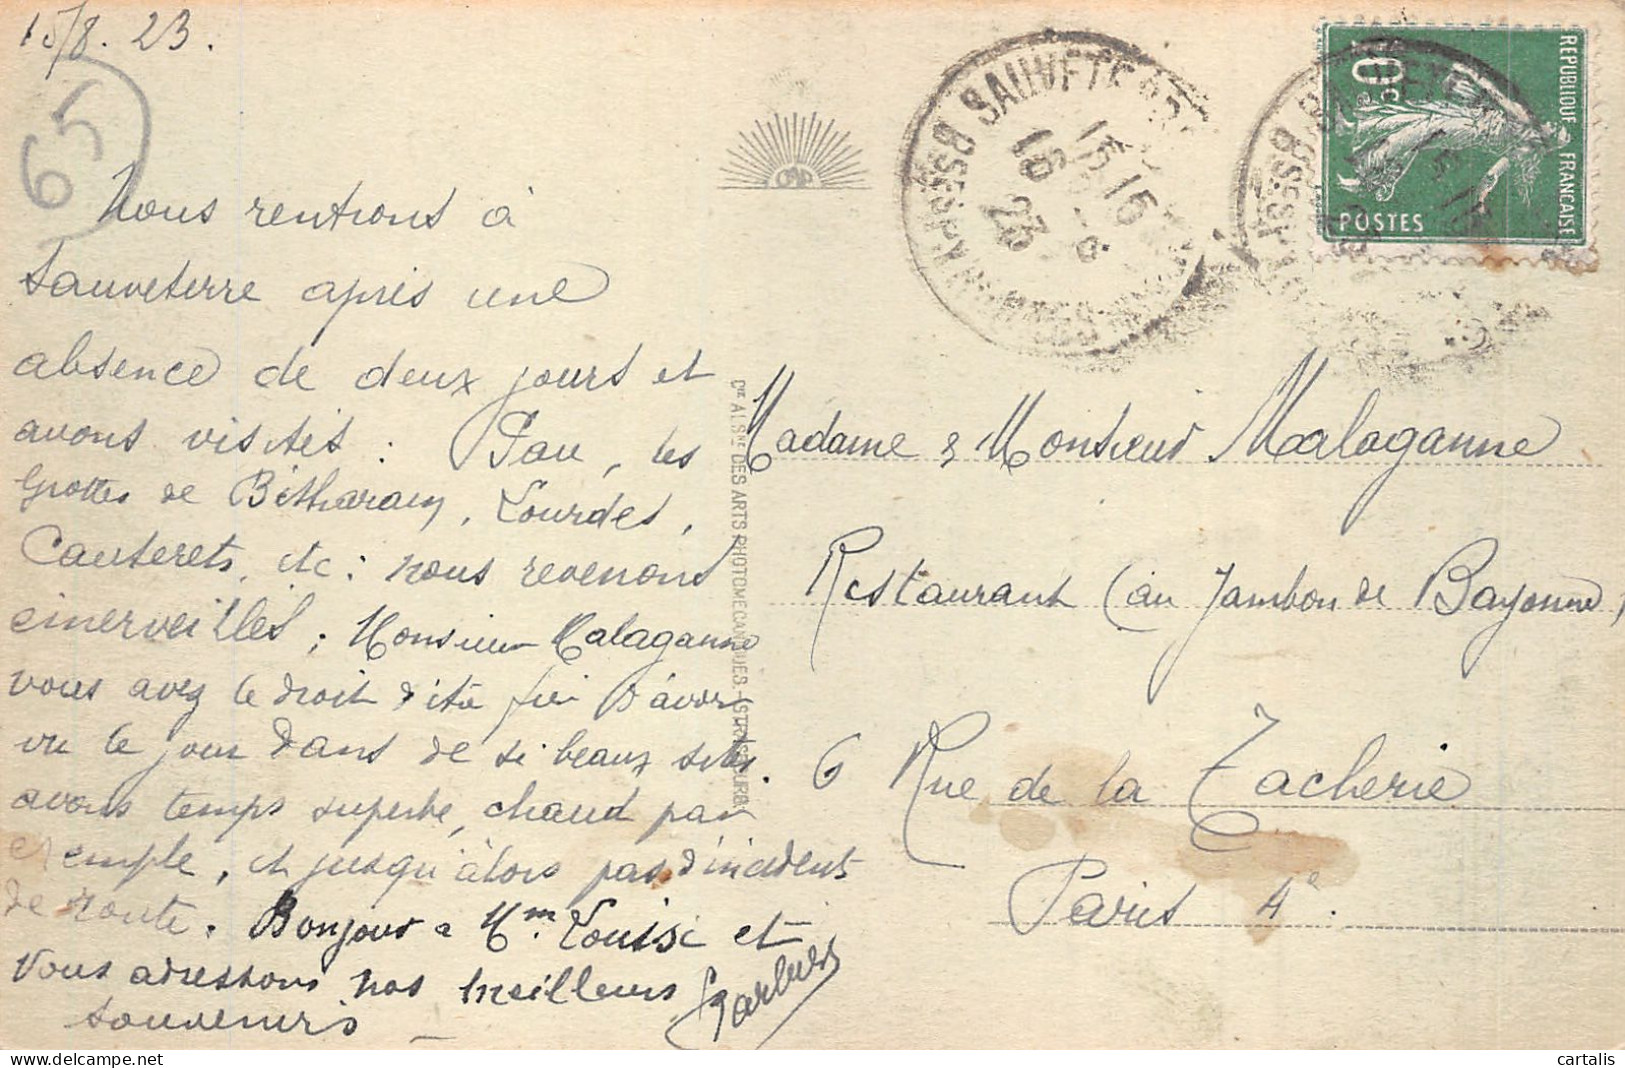 15/8. 23.
65
Nous rentrons à
Sauveterre après une
absence de deux jours et
avons visités : Pau, les
Grottes de Bétharam, Lourdes,
Cauterets, etc : nous revenons
émerveillés ; Monsieur Malaganne
vous avez le droit d'être fier d'avoir
vu le jour dans de si beaux sites.
avons temps superbe, chaud par
exemple, et jusqu'àlors pas d'incident
de route. Bonjour a Mm. Louise et
Vous adressons nos meilleurs
souvenirs
CIE AL. SNE DES ARTS PHOTOMECANIQUES. - STRASBOURG.
CAP
SAUVETERRE
BSSES PYRENEES
15 15
16 - 8
23
REPUBLIQUE FRANCAISE
10c
POSTES
Madame & Monsieur Malaganne
Restaurant (au Jambon de Bayonne)
6 Rue de la Tacherie
Paris 4e.
delcampe.net
cartalis